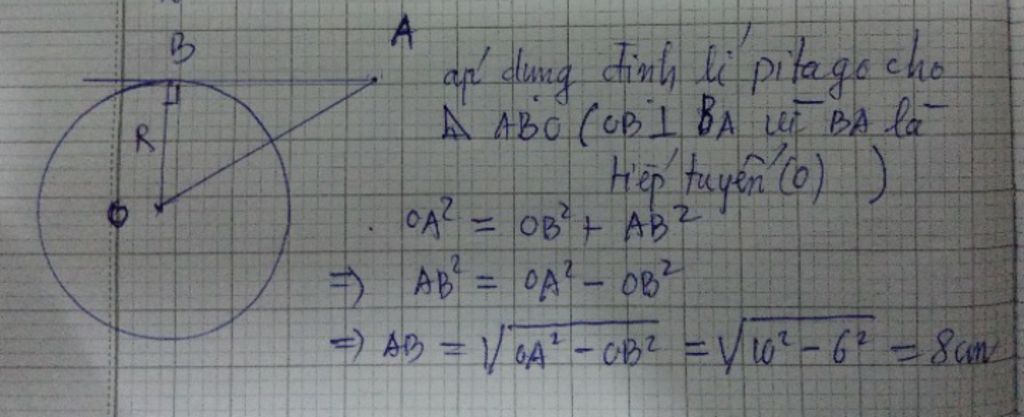 B
A
R
O
áp dụng định lí pitago cho
Δ ABO (OB ⊥ BA vì BA là
tiếp tuyến (O) )
OA² = OB² + AB²
⇒ AB² = OA² - OB²
⇒ AB = √(OA² - OB²) = √(10² - 6²) = 8cm